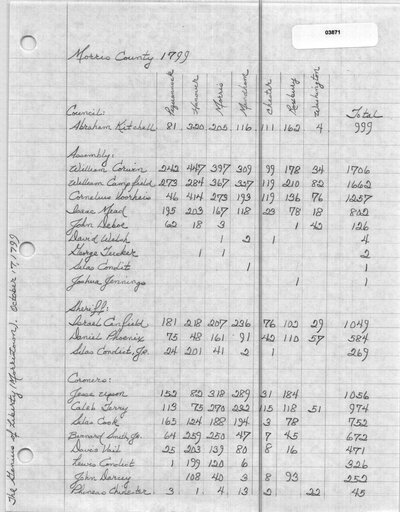 03871
Morris County 1799
Pequannock Hanover Morris Mendham Chester Roxbury Washington
Council: Total
Abraham Kitchell 81 320 205 116 111 162 4 999
Assembly:
William Corwin 242 447 397 309 99 178 34 1706
William Campfield 273 284 367 327 119 210 82 1662
Cornelius Voorheis 46 414 273 193 119 136 76 1257
Isaac Mead 195 203 167 118 23 78 18 802
John Debow 62 18 3 1 42 126
David Welsh 1 2 1 4
George Tucker 1 1 2
Silas Condit 1 1
Joshua Jennings 1 1
Sheriff:
Israel Canfield 181 218 207 236 76 102 29 1049
Daniel Phoenix 75 48 161 91 42 110 57 584
Silas Condict, Jr. 24 201 41 2 1 269
Coroners:
Jesse Upson 152 82 318 289 31 184 1056
Caleb Terry 113 75 270 232 115 118 51 974
Silas Cook 165 124 188 194 3 78 752
Bernard Smith, Jr. 64 259 250 47 7 45 672
David Vail 25 203 139 80 8 16 471
Lewis Condict 1 199 120 6 326
John Darcey 108 40 3 8 93 252
Phineas Chidester 3 1 4 13 2 22 45
The Genius of Liberty (Morristown), October 17, 1799